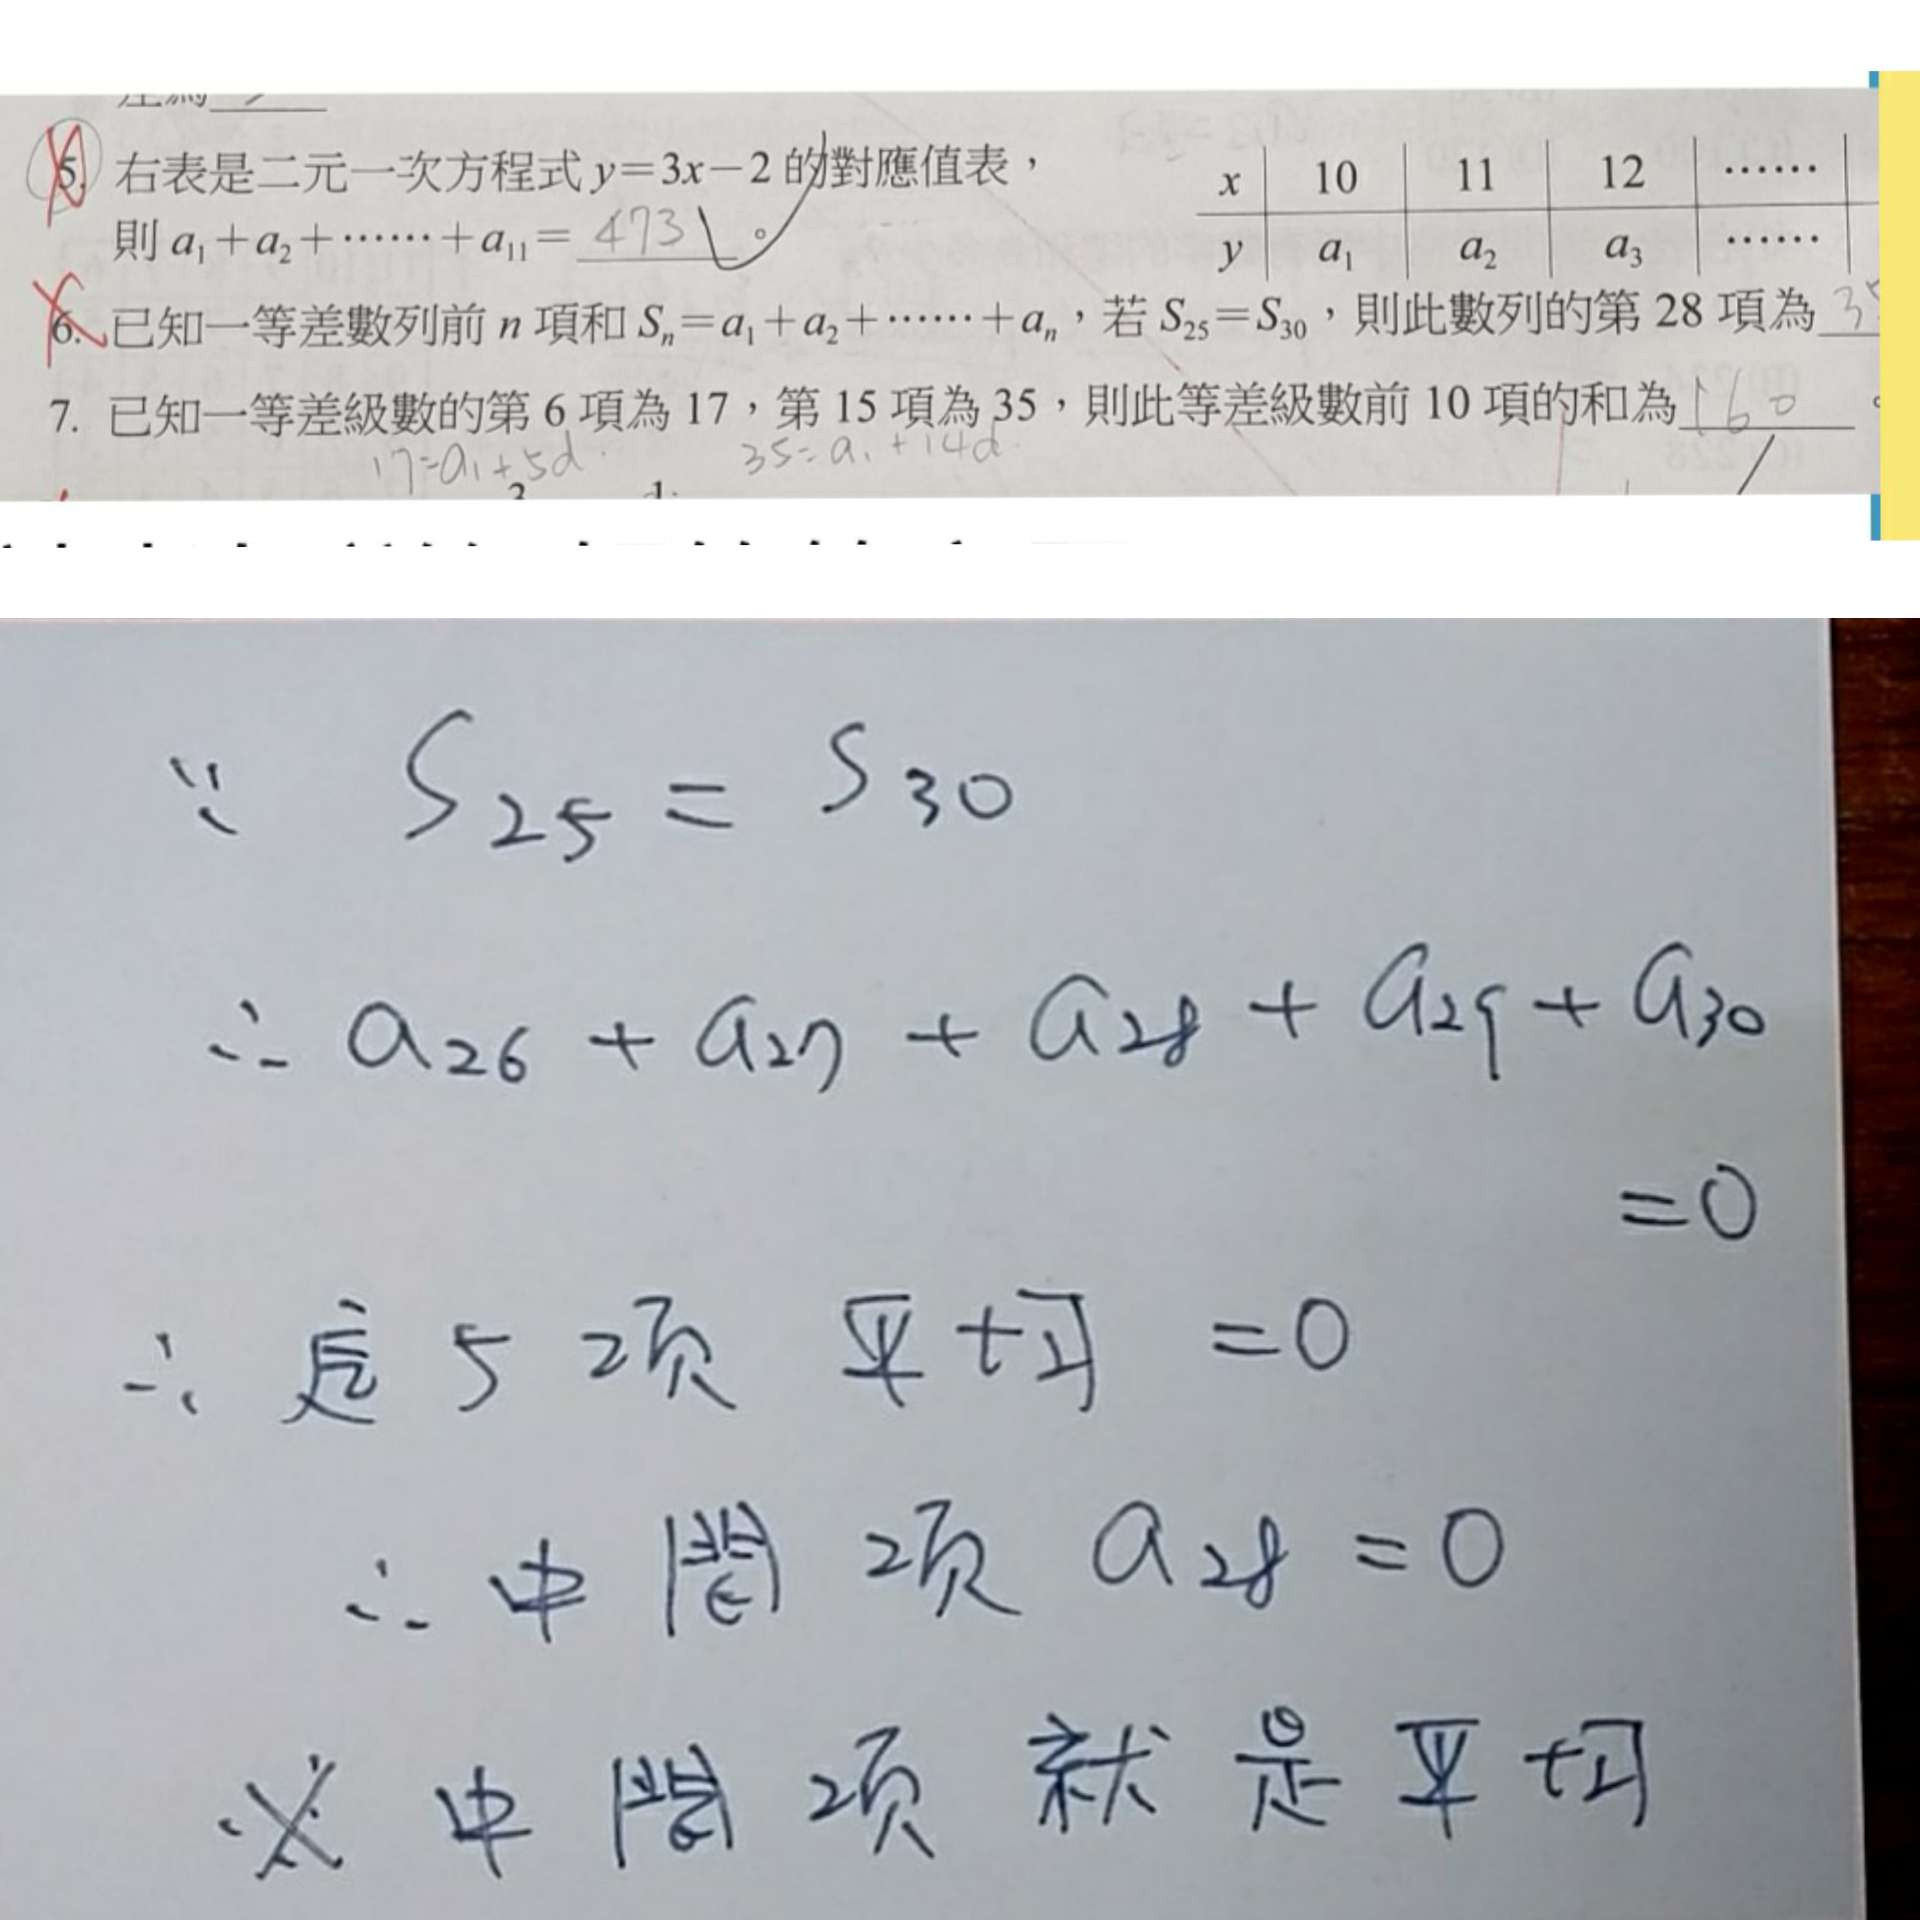 5. 右表是二元一次方程式 y=3x−2 的對應值表，
則 a₁+a₂+……+a₁₁= 473 。
x 10 11 12 ……
y a₁ a₂ a₃ ……
6. 已知一等差數列前 n 項和 Sₙ=a₁+a₂+……+aₙ，若 S₂₅=S₃₀，則此數列的第 28 項為
7. 已知一等差級數的第 6 項為 17，第 15 項為 35，則此等差級數前 10 項的和為 160 。
17=a₁+5d 35=a₁+14d
∵ S₂₅=S₃₀
∴ a₂₆+a₂₇+a₂₈+a₂₉+a₃₀
=0
∴ 這 5 項 平均 =0
∴ 中間項 a₂₈=0
※ 中間項 就是平均